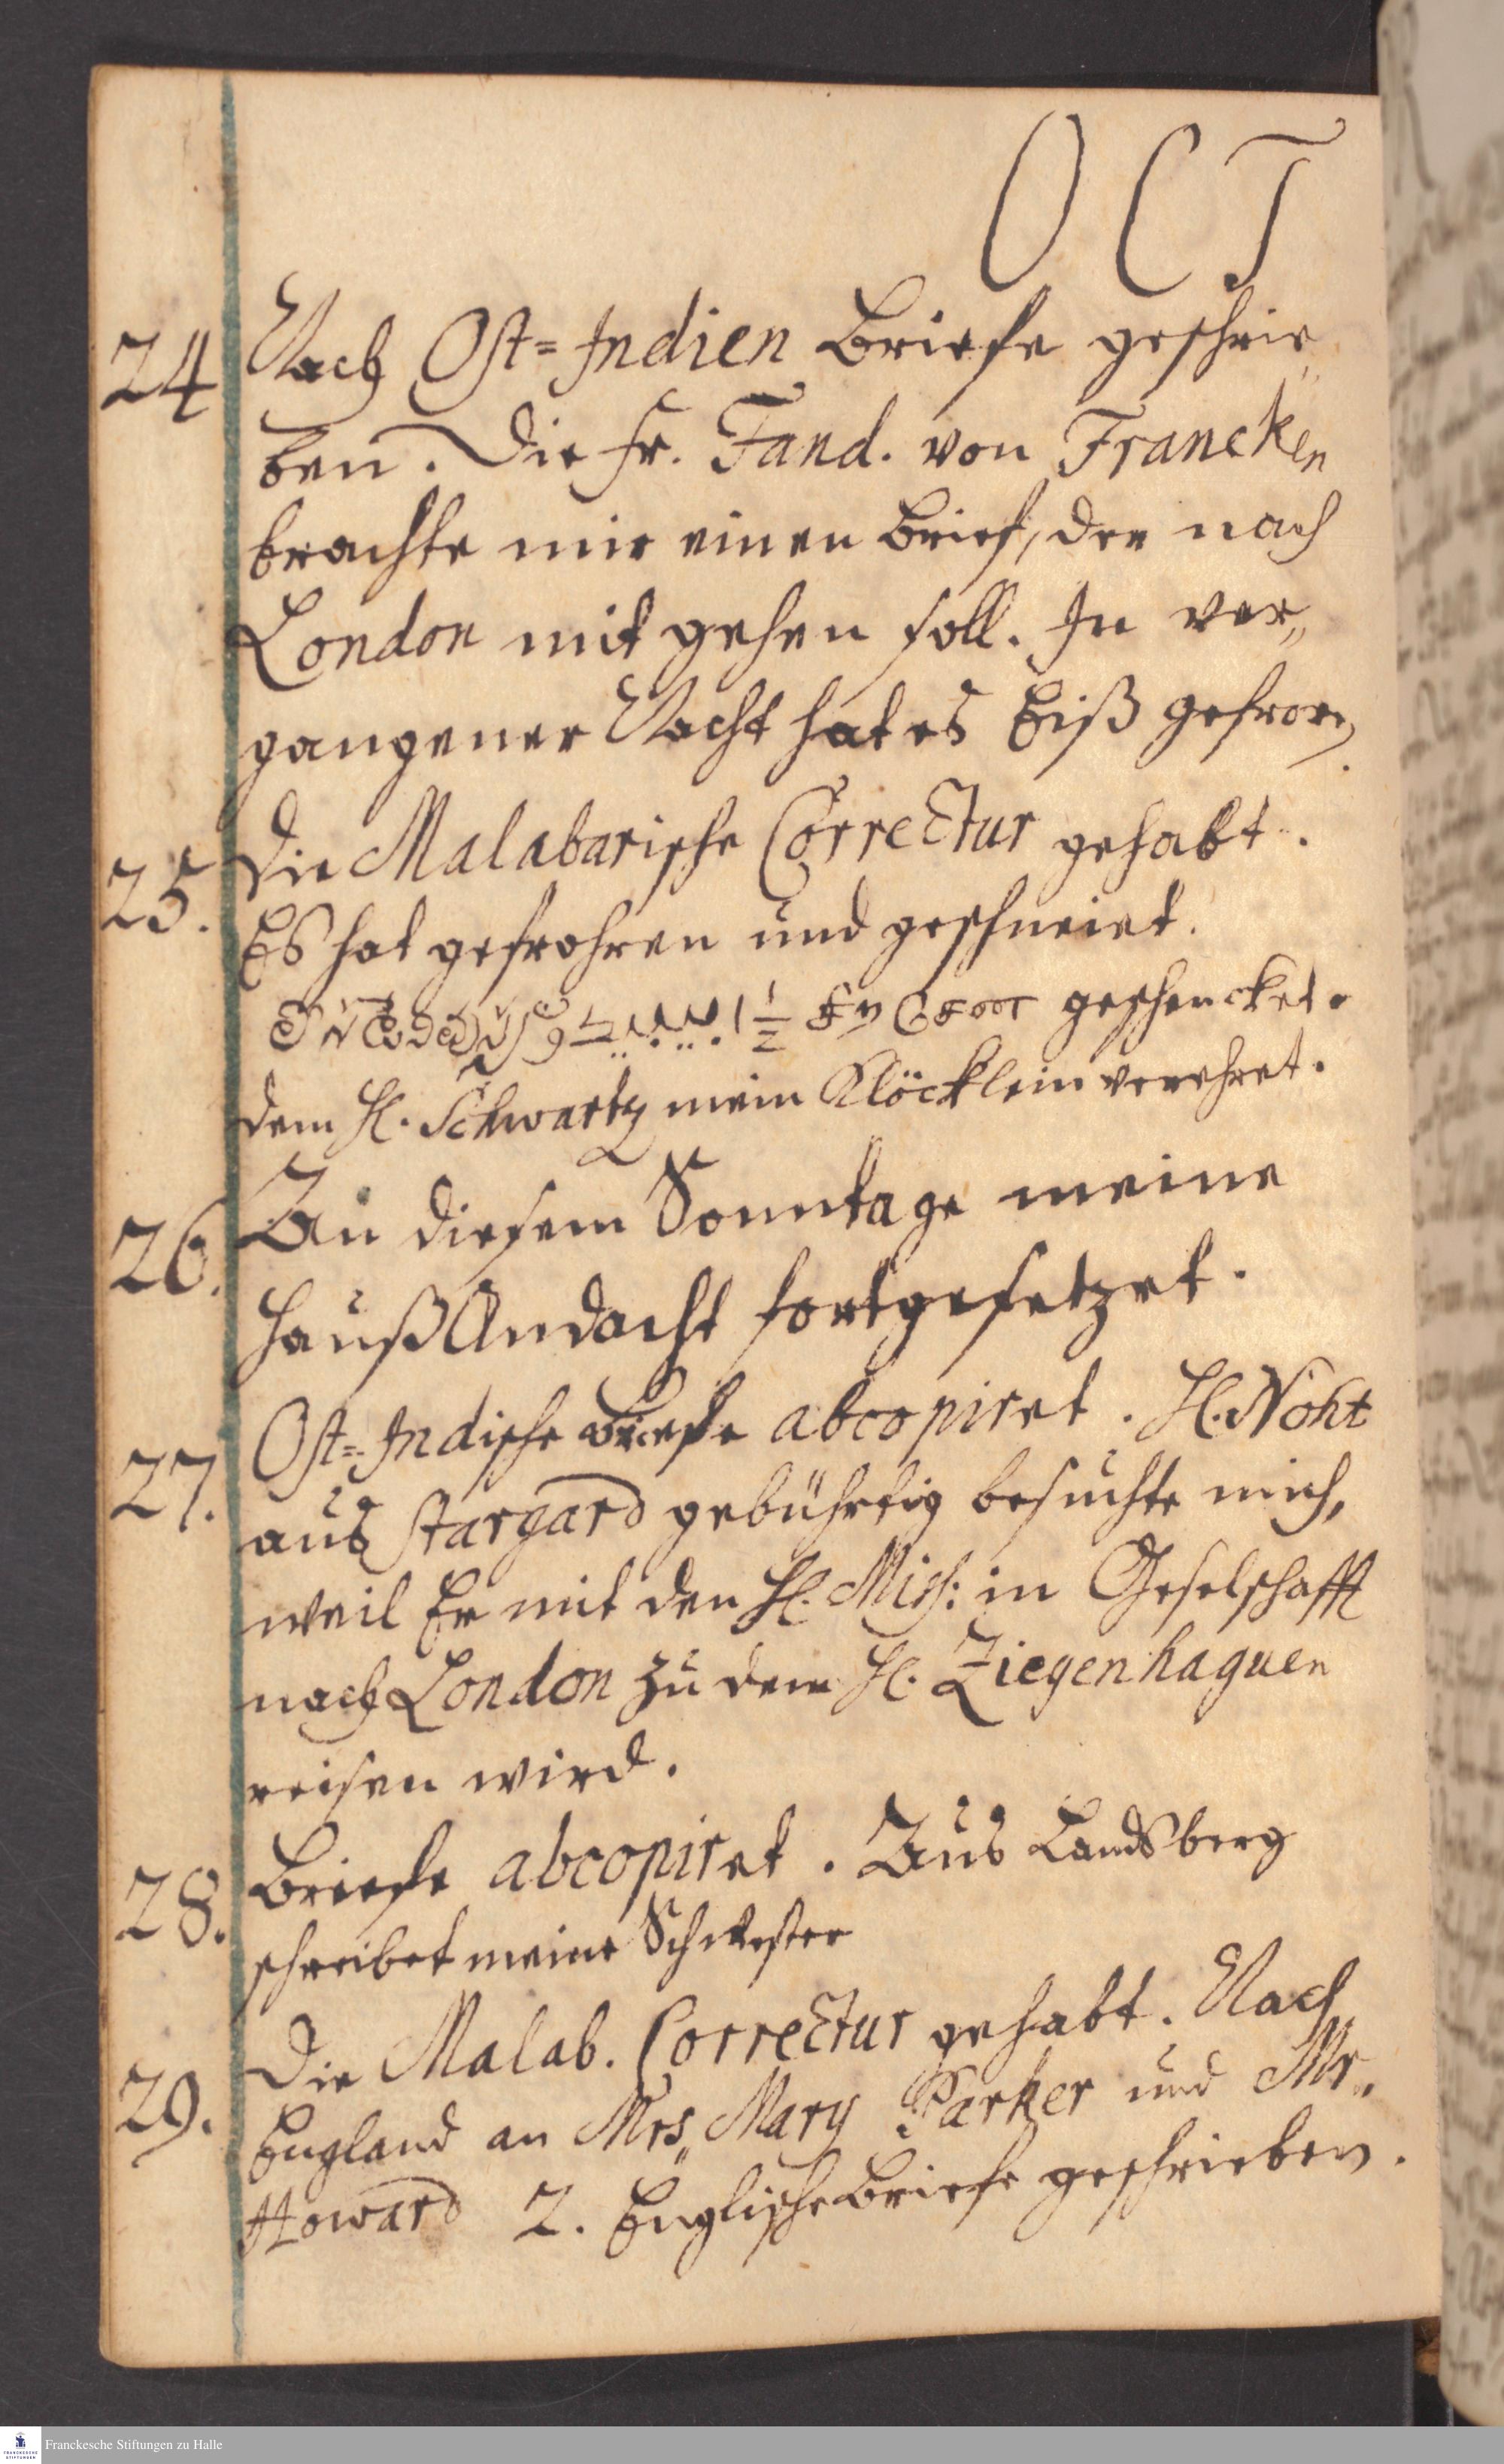 OCT
24 Nach Ost=Indien Briefe geschrie„
ben. Die Fr. Fand. von Francken
brachte mir einen Brief, der nach
London mit gehen soll. In ver„
gangener Nacht hat es Eiß gefroren.
25. Die Malabarische Correctur gehabt.
Es hat gefrohren und geschneiet.
1½ geschencket.
dem H. Schwartz mein Klöcklein verehret.
26. An diesem Sonntage meine
Hauß Andacht fortgesetzet.
27. Ost=Indische Briefe abcopiret. H. Noht
aus Stargard gebührtig besuchte mich,
weil Er mit den H. Miss: in Geselschafft
nach London zu dem H. Ziegenhaguen
reisen wird.
28. Briefe abcopiret. Aus Landsberg
schreibet meine Schwester
29. Die Malab. Correctur gehabt. Nach
England an Mrs„ Mary Parker und Mr„
Howard 2. Englische Briefe geschrieben.
Franckesche Stiftungen zu Halle